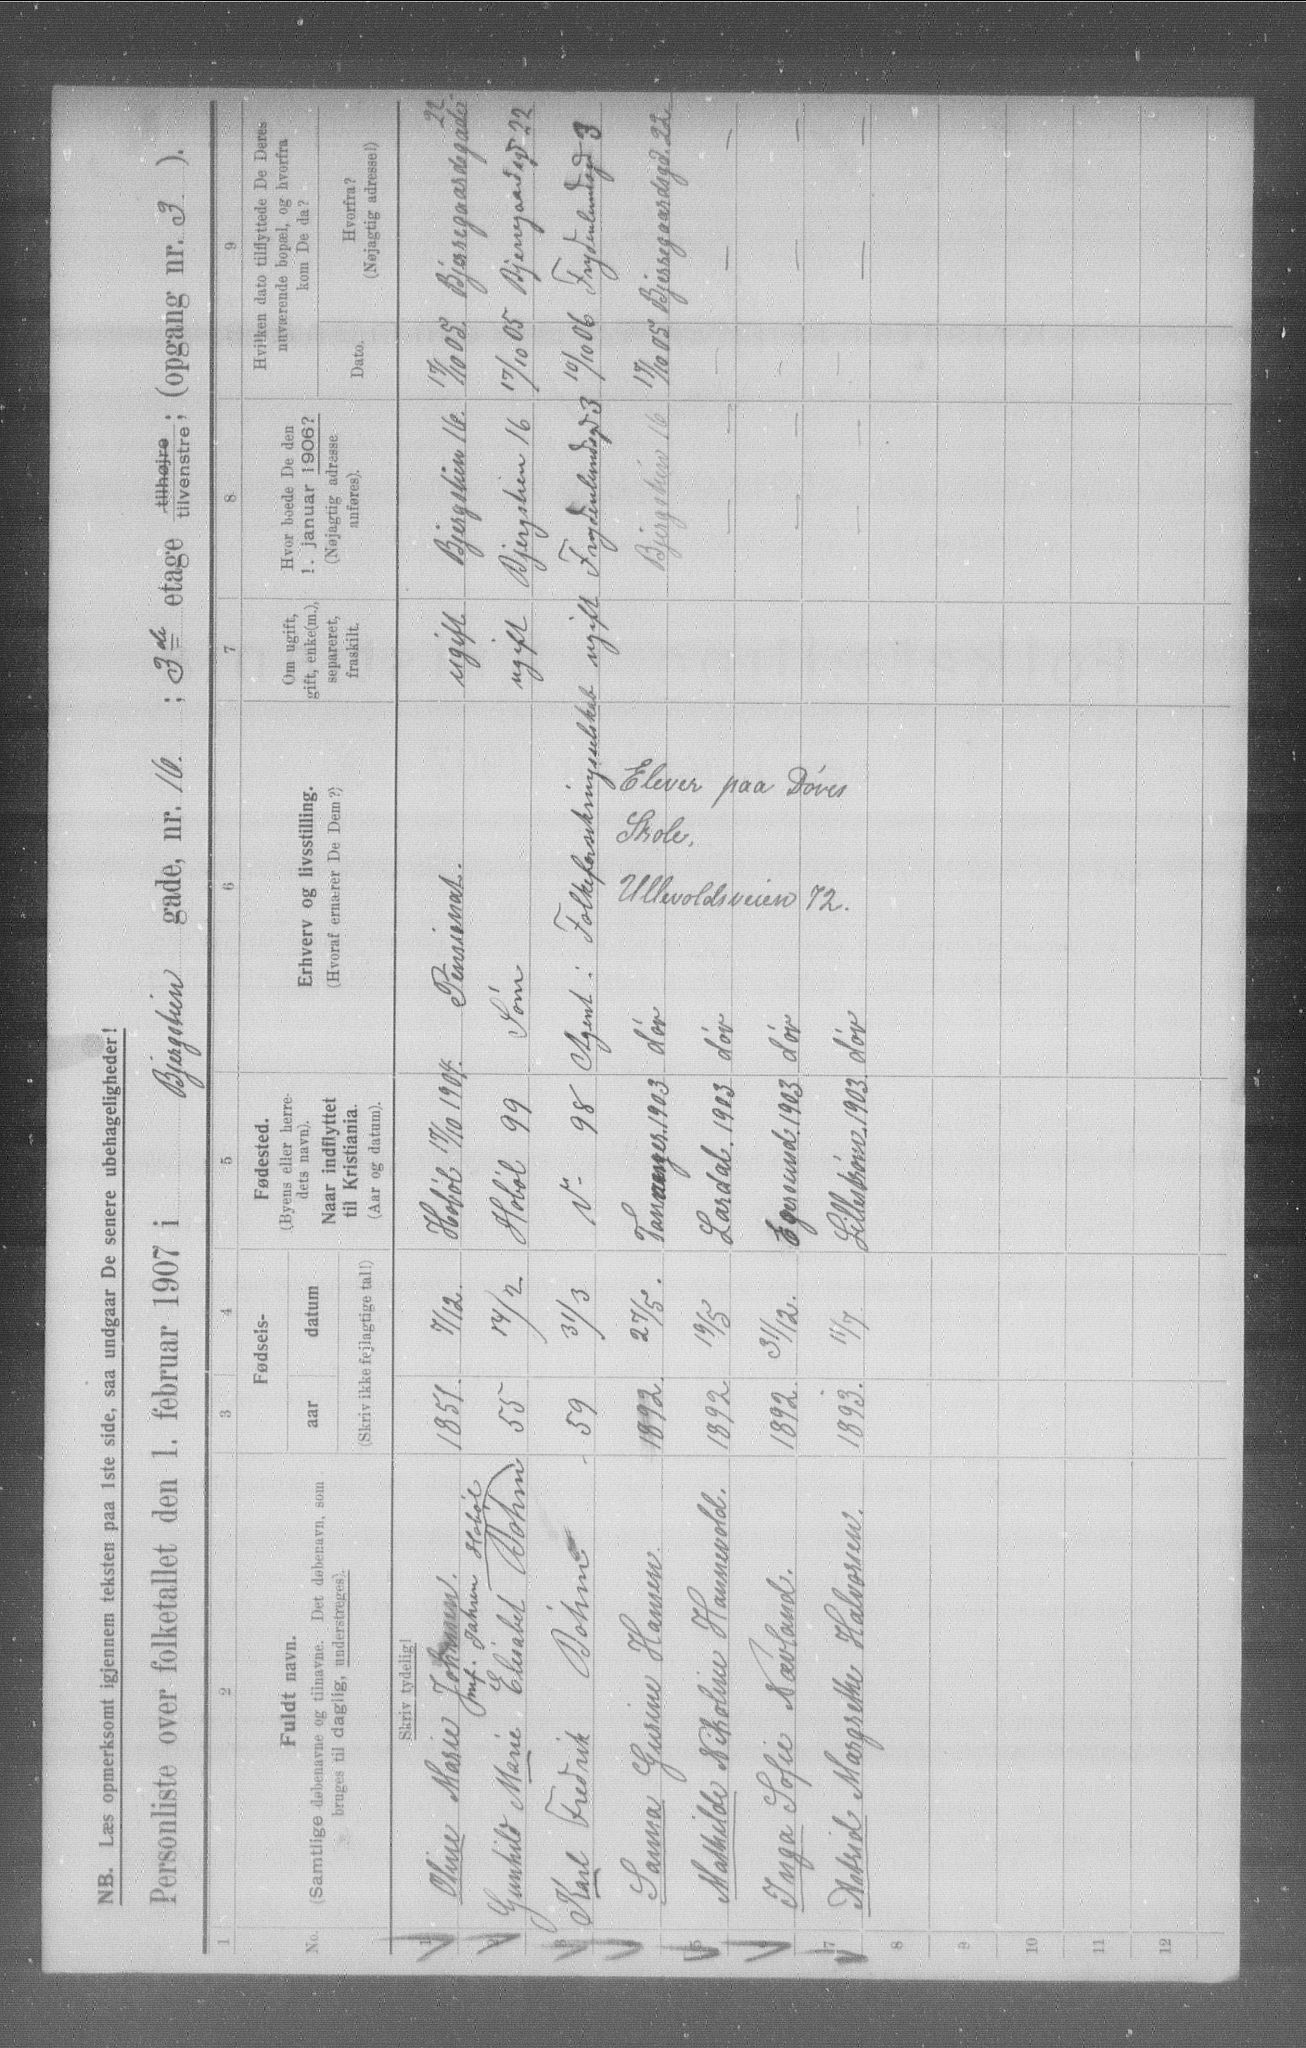 NB. Læs opmerksomt igjennem teksten paa 1ste side, saa undgaar De senere ubehageligheder!
Personliste over folketallet den 1. februar 1907 i Bjergstien gade, nr. 16. ; 3de etage tilhøjre tilvenstre ; (opgang nr. 3 ).
1 2 3 4 5 6 7 8 9
No.
Fuldt navn.
(Samtlige døbenavne og tilnavne. Det døbenavn, som
bruges til daglig, understreges).
Fødsels-
aar datum
(Skriv ikke fejlagtige tal!)
Fødested.
(Byens eller herre-
dets navn).
Naar indflyttet
til Kristiania.
(Aar og datum).
Erhverv og livsstilling.
(Hvoraf ernærer De Dem?)
Om ugift,
gift, enke(m.),
separeret,
fraskilt.
Hvor boede De den
1. januar 1906?
(Nøjagtig adresse
anføres).
Hvilken dato tilflyttede De Deres
nuværende bopæl, og hvorfra
kom De da?
Dato.
Hvorfra?
(Nøjagtig adresse!)
Skriv tydelig!
1 Oline Marie 1851. 7/12. Hobøl 17/10 1904. Pensionat. ugift Bjergstien 16. 17/10 05 Bjerregaardsgade 22
Jahren Hobøl
2 Gunhild Marie Elisabet Bøhm 55 14/2 Hobøl 99 Søm ugift Bjergstien 16 17/10 05 Bjerregaardsgd 22
3 Karl Fredrik Bøhm 59 31/3 98 Agent i Folkeforsikringsselskab ugift Frydenlundsgd 3 10/10 06 Frydenlundsgd 3
4 Sanna Gurine Hansen. 1892. 27/5. 1903 døv Bjergstien 16 17/10 05 Bjerregaardsgd. 22
5 Mathilde Nikoline Hannevold. 1892 19/5 Lardal. 1903 døv — — — — —
6 Inga Sofie Nævland. 1892. 31/12. Egersund. 1903 døv — — — — —
7 Astrid Margrethe Halvorsen. 1893. 11/7 Lillestrøm. 1903 døv — — — — —
Elever paa Døves
Skole.
Ullevoldsveien 72.
8
9
10
11
12